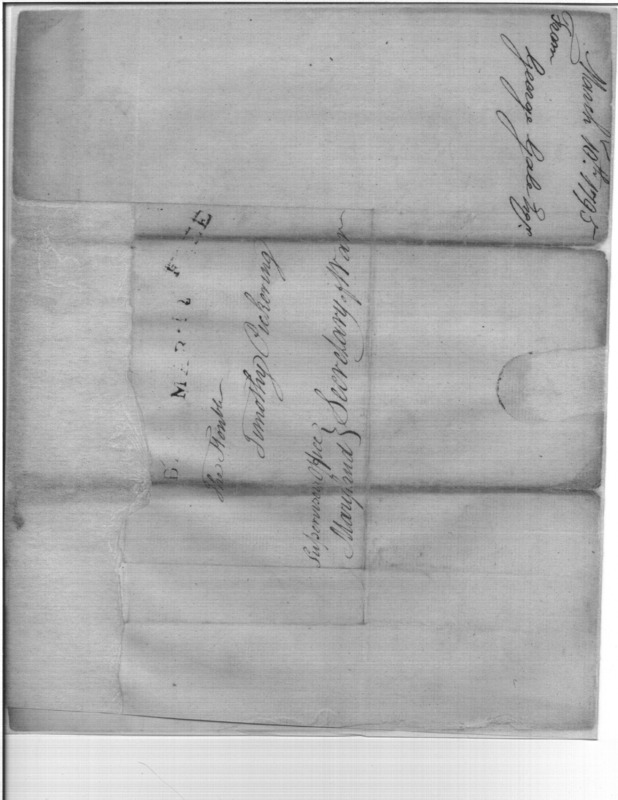 March 10th. 1795
From
George Gale Esqr.
MAR
The Honble
Timothy Pickering
Secretary of War
Supervisors Office }
Maryland }